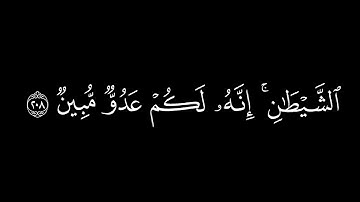 ٱلشَّيۡطَٰنِۚ إِنَّهُۥ لَكُمۡ عَدُوّٞ مُّبِينٞ ۝٢٠٨